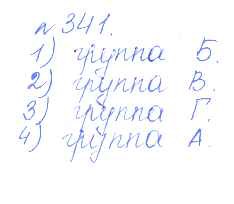 № 341.
1) группа Б.
2) группа В.
3) группа Г.
4) группа А.